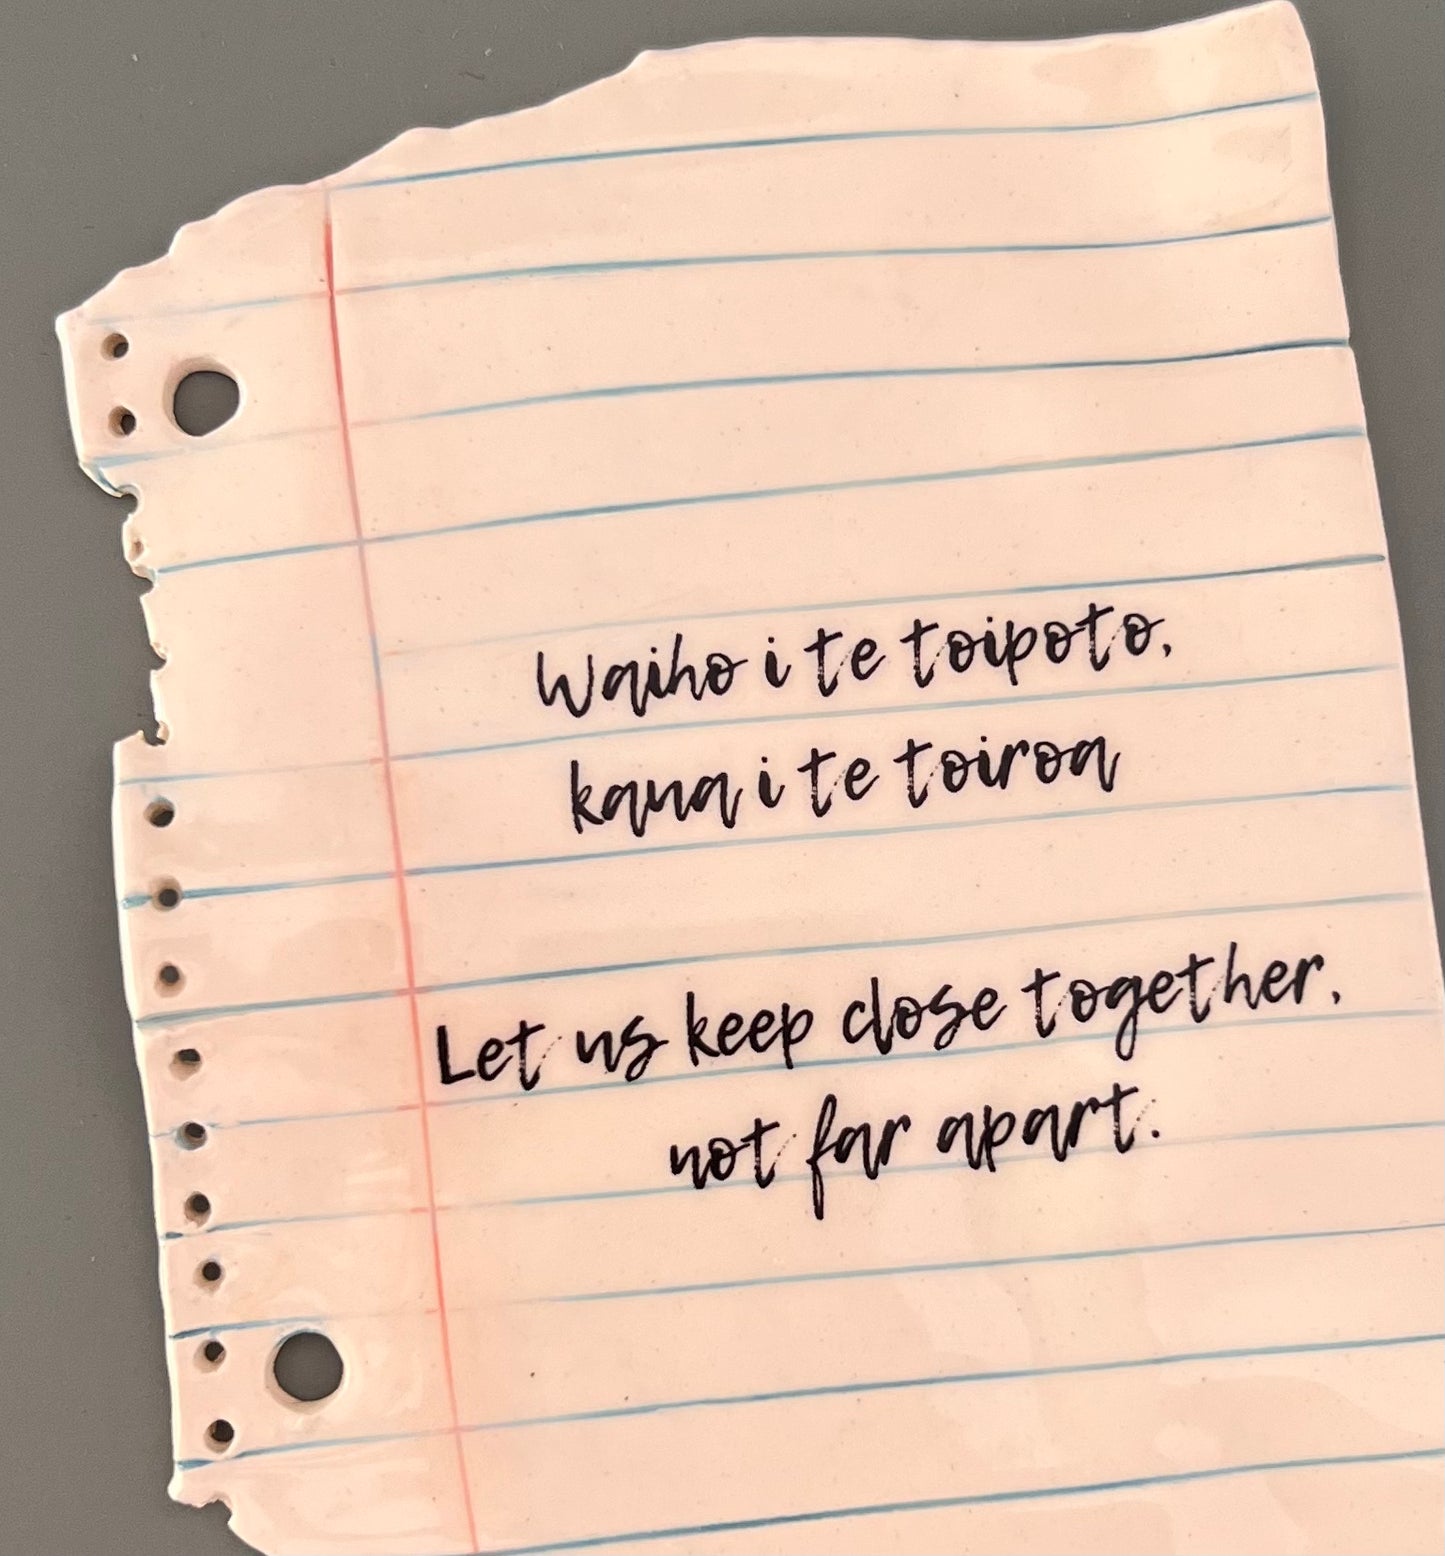 Waiho i te toipoto,
kaua i te toiroa
Let us keep close together,
not far apart.